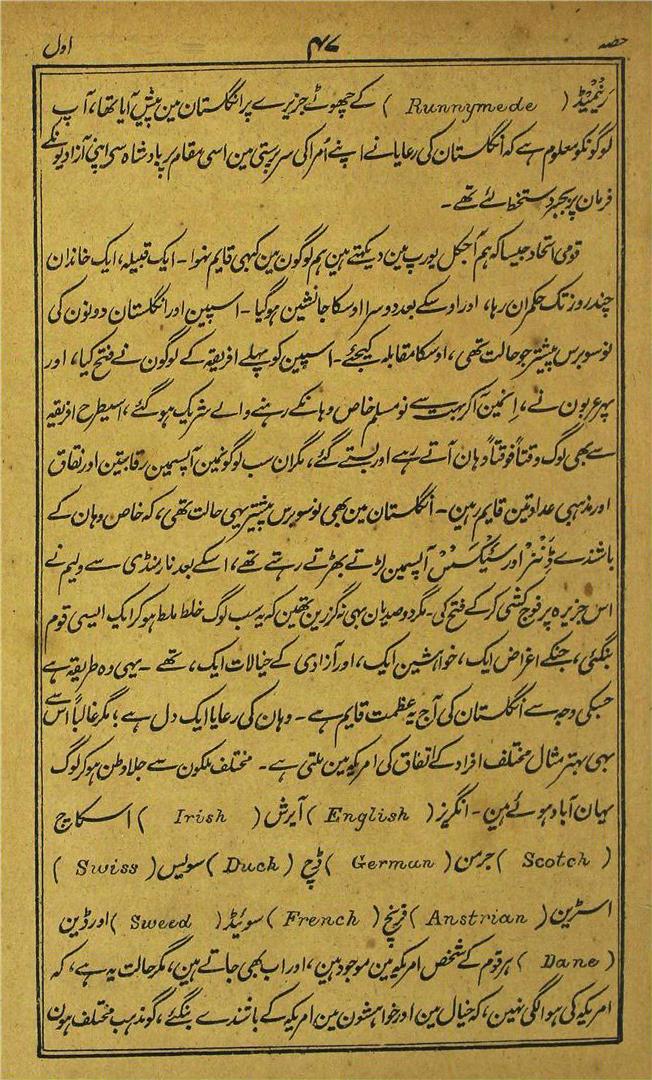 حصہ ۴۷ اول
رَنِمِیْڈ ( Runnymede ) کے چھوٹے جزیرے پر انگلستان مین پیش آیا تھا، آپ
لوگونکو معلوم ہے کہ انگلستان کی رعایا نے اپنے اُمرا کی سرپرستی مین اسی مقام پر بادشاہ سی اپنی آزادیونکے
فرمان پر بجبر دستخط لئے تھے ۔
قومی اتحاد جیسا کہ ہم آجکل یورپ مین دیکہتے ہین ہم لوگون مین کبہی قایم نہوا ۔ ایک قبیلہ، ایک خاندان
چند روز تک حکمران رہا، اور اوسکے بعد دوسرا اوسکا جانشین ہوگیا ۔ اسپین اور انگلستان دونون کی
نو سو برس پیشتر جو حالت تھی، اوسکا مقابلہ کیجئے ۔ اسپین کو پہلے افریقہ کے لوگون نے فتح کیا، اور
پہر عربون نے، اِنمین آکر بہت سے نو مسلم خاص وہانکے رہنے والے شریک ہوگئے، اسیطرح افریقہ
سے بھی لوگ وقتاً فوقتاً وہان آتے رہے اور بستے گئے، مگر ان سب لوگونمین آپسمین رقابتین اور نفاق
اور مذہبی عداوتین قایم رہین ۔ انگلستان مین بھی نو سو برس پیشتر یہی حالت تھی، کہ خاص وہان کے
باشندے ڈَنْنز اور سَیْکسَنْس آپسمین لڑتے بھڑتے رہتے تھے، اسکے بعد نارمنڈی سے ولیم نے
اس جزیرہ پر فوج کشی کرکے فتح کی ۔ مگر دو صدیان بہی نگزرین تھین کہ یہ سب لوگ خلط ملط ہوکر ایک ایسی قوم
بنگئی، جنکے اغراض ایک، خواہشین ایک، اور آزادی کے خیالات ایک، تھے ۔ یہی وہ طریقہ ہے
جسکی وجہ سے انگلستان کی آج یہ عظمت قایم ہے ۔ وہان کی رعایا ایک دل ہے؛ مگر غالباً اس سے
بہی بہتر مثال مختلف افراد کے اتفاق کی امریکہ مین ملتی ہے ۔ مختلف ملکون سے جلاوطن ہوکر لوگ
یہان آباد ہوئے ہین ۔ انگریز ( English ) آیرش ( Irish ) اسکاچ
( Scotch ) جرمن ( German ) ڈچ ( Duch ) سویس ( Swiss )
اسٹرین ( Anstrian ) فرینچ ( French ) سوئیڈ ( Sweed ) اور ڈین
( Dane ) ہر قوم کے شخص امریکہ مین موجود ہین، اور اب بھی جاتے ہین، مگر حالت یہ ہے، کہ
امریکہ کی ہوا لگی نہین، کہ خیال مین اور خواہشون مین امریکہ کے باشندے بنگئے، گو مذہب مختلف ہون